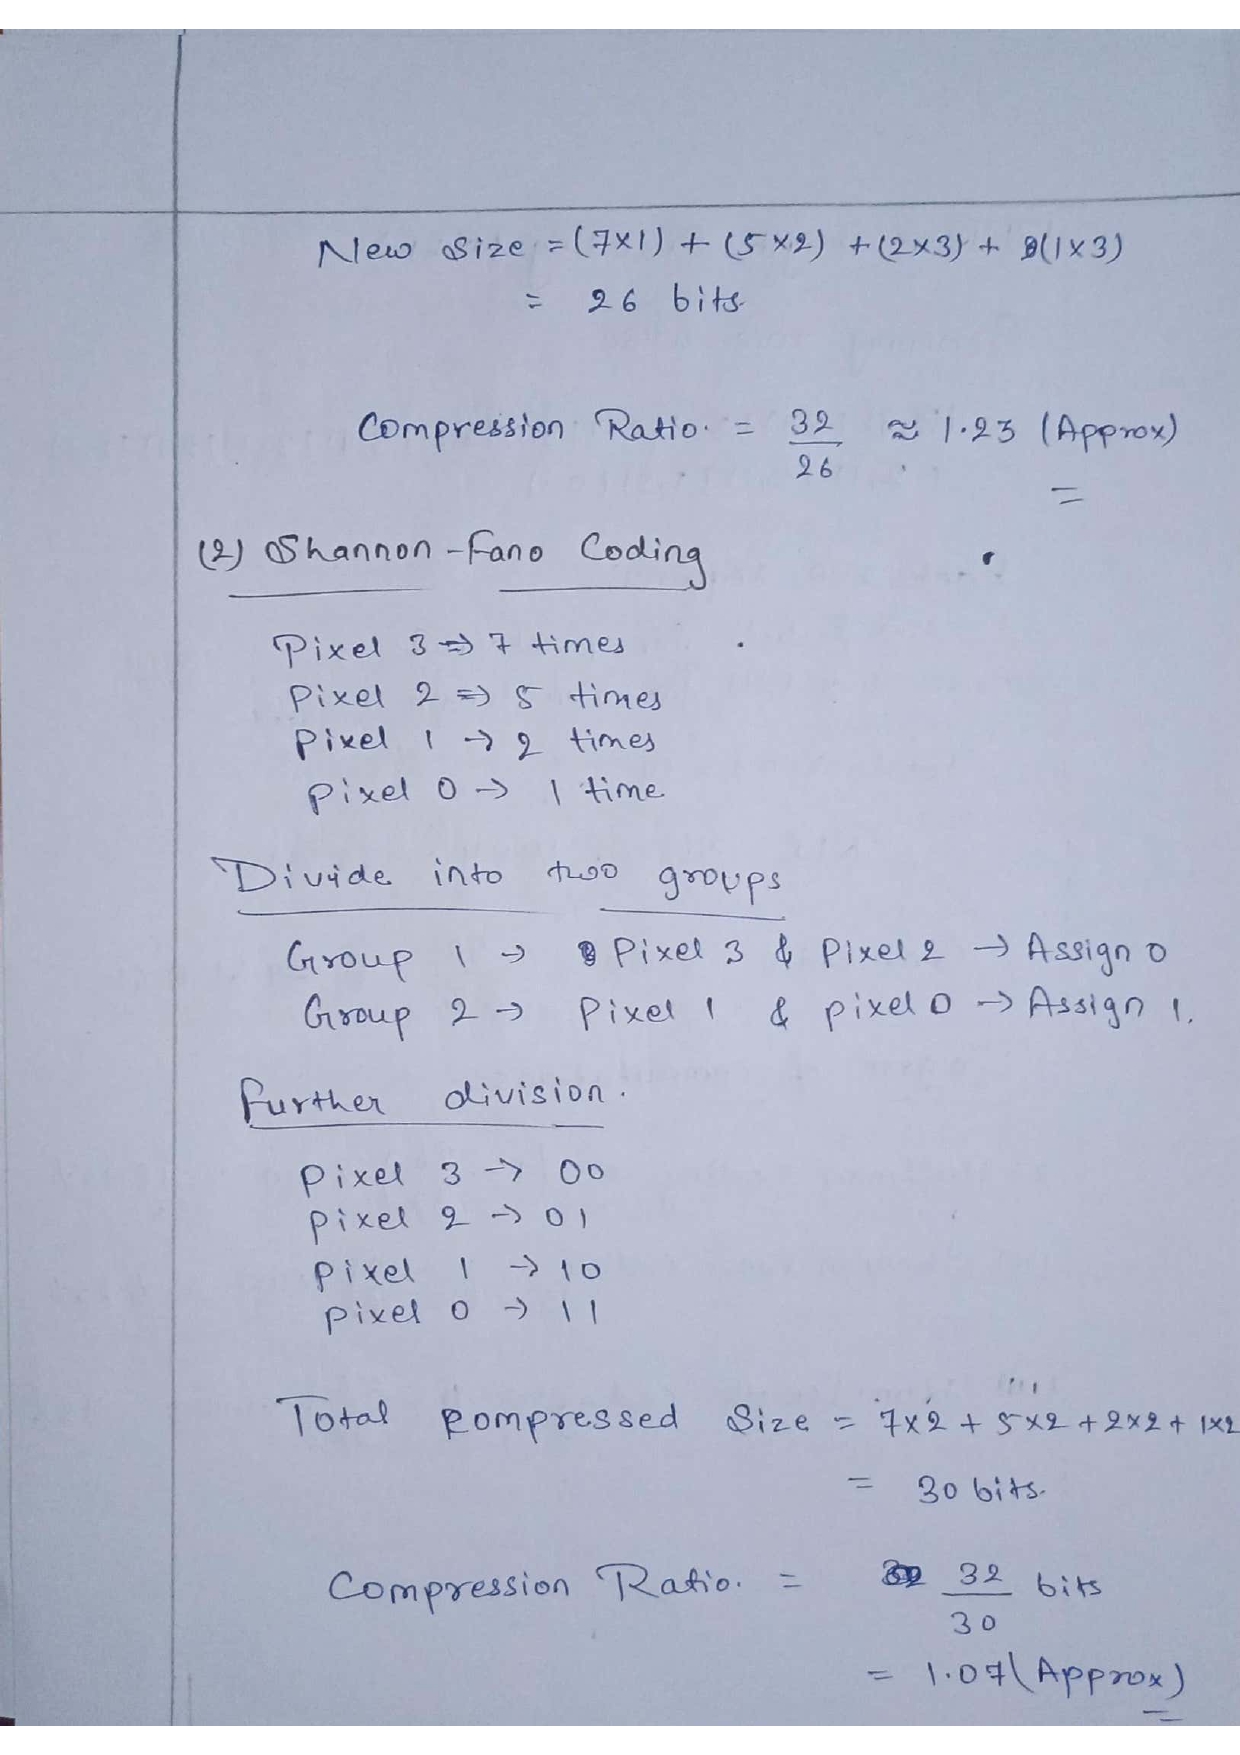 New Size = (7×1) + (5×2) + (2×3) + (1×3)
= 26 bits.
Compression Ratio. = 32/26 ≈ 1.23 (Approx)
=
(2) Shannon-Fano Coding
Pixel 3 => 7 times
Pixel 2 => 5 times
Pixel 1 → 2 times
Pixel 0 → 1 time
Divide into two groups
Group 1 → Pixel 3 & Pixel 2 → Assign 0
Group 2 → Pixel 1 & pixel 0 → Assign 1.
Further division.
Pixel 3 → 00
Pixel 2 → 01
Pixel 1 → 10
Pixel 0 → 11
Total Compressed Size = 7×2 + 5×2 + 2×2 + 1×2
= 30 bits.
Compression Ratio. = 32/30 bits
= 1.07 (Approx)